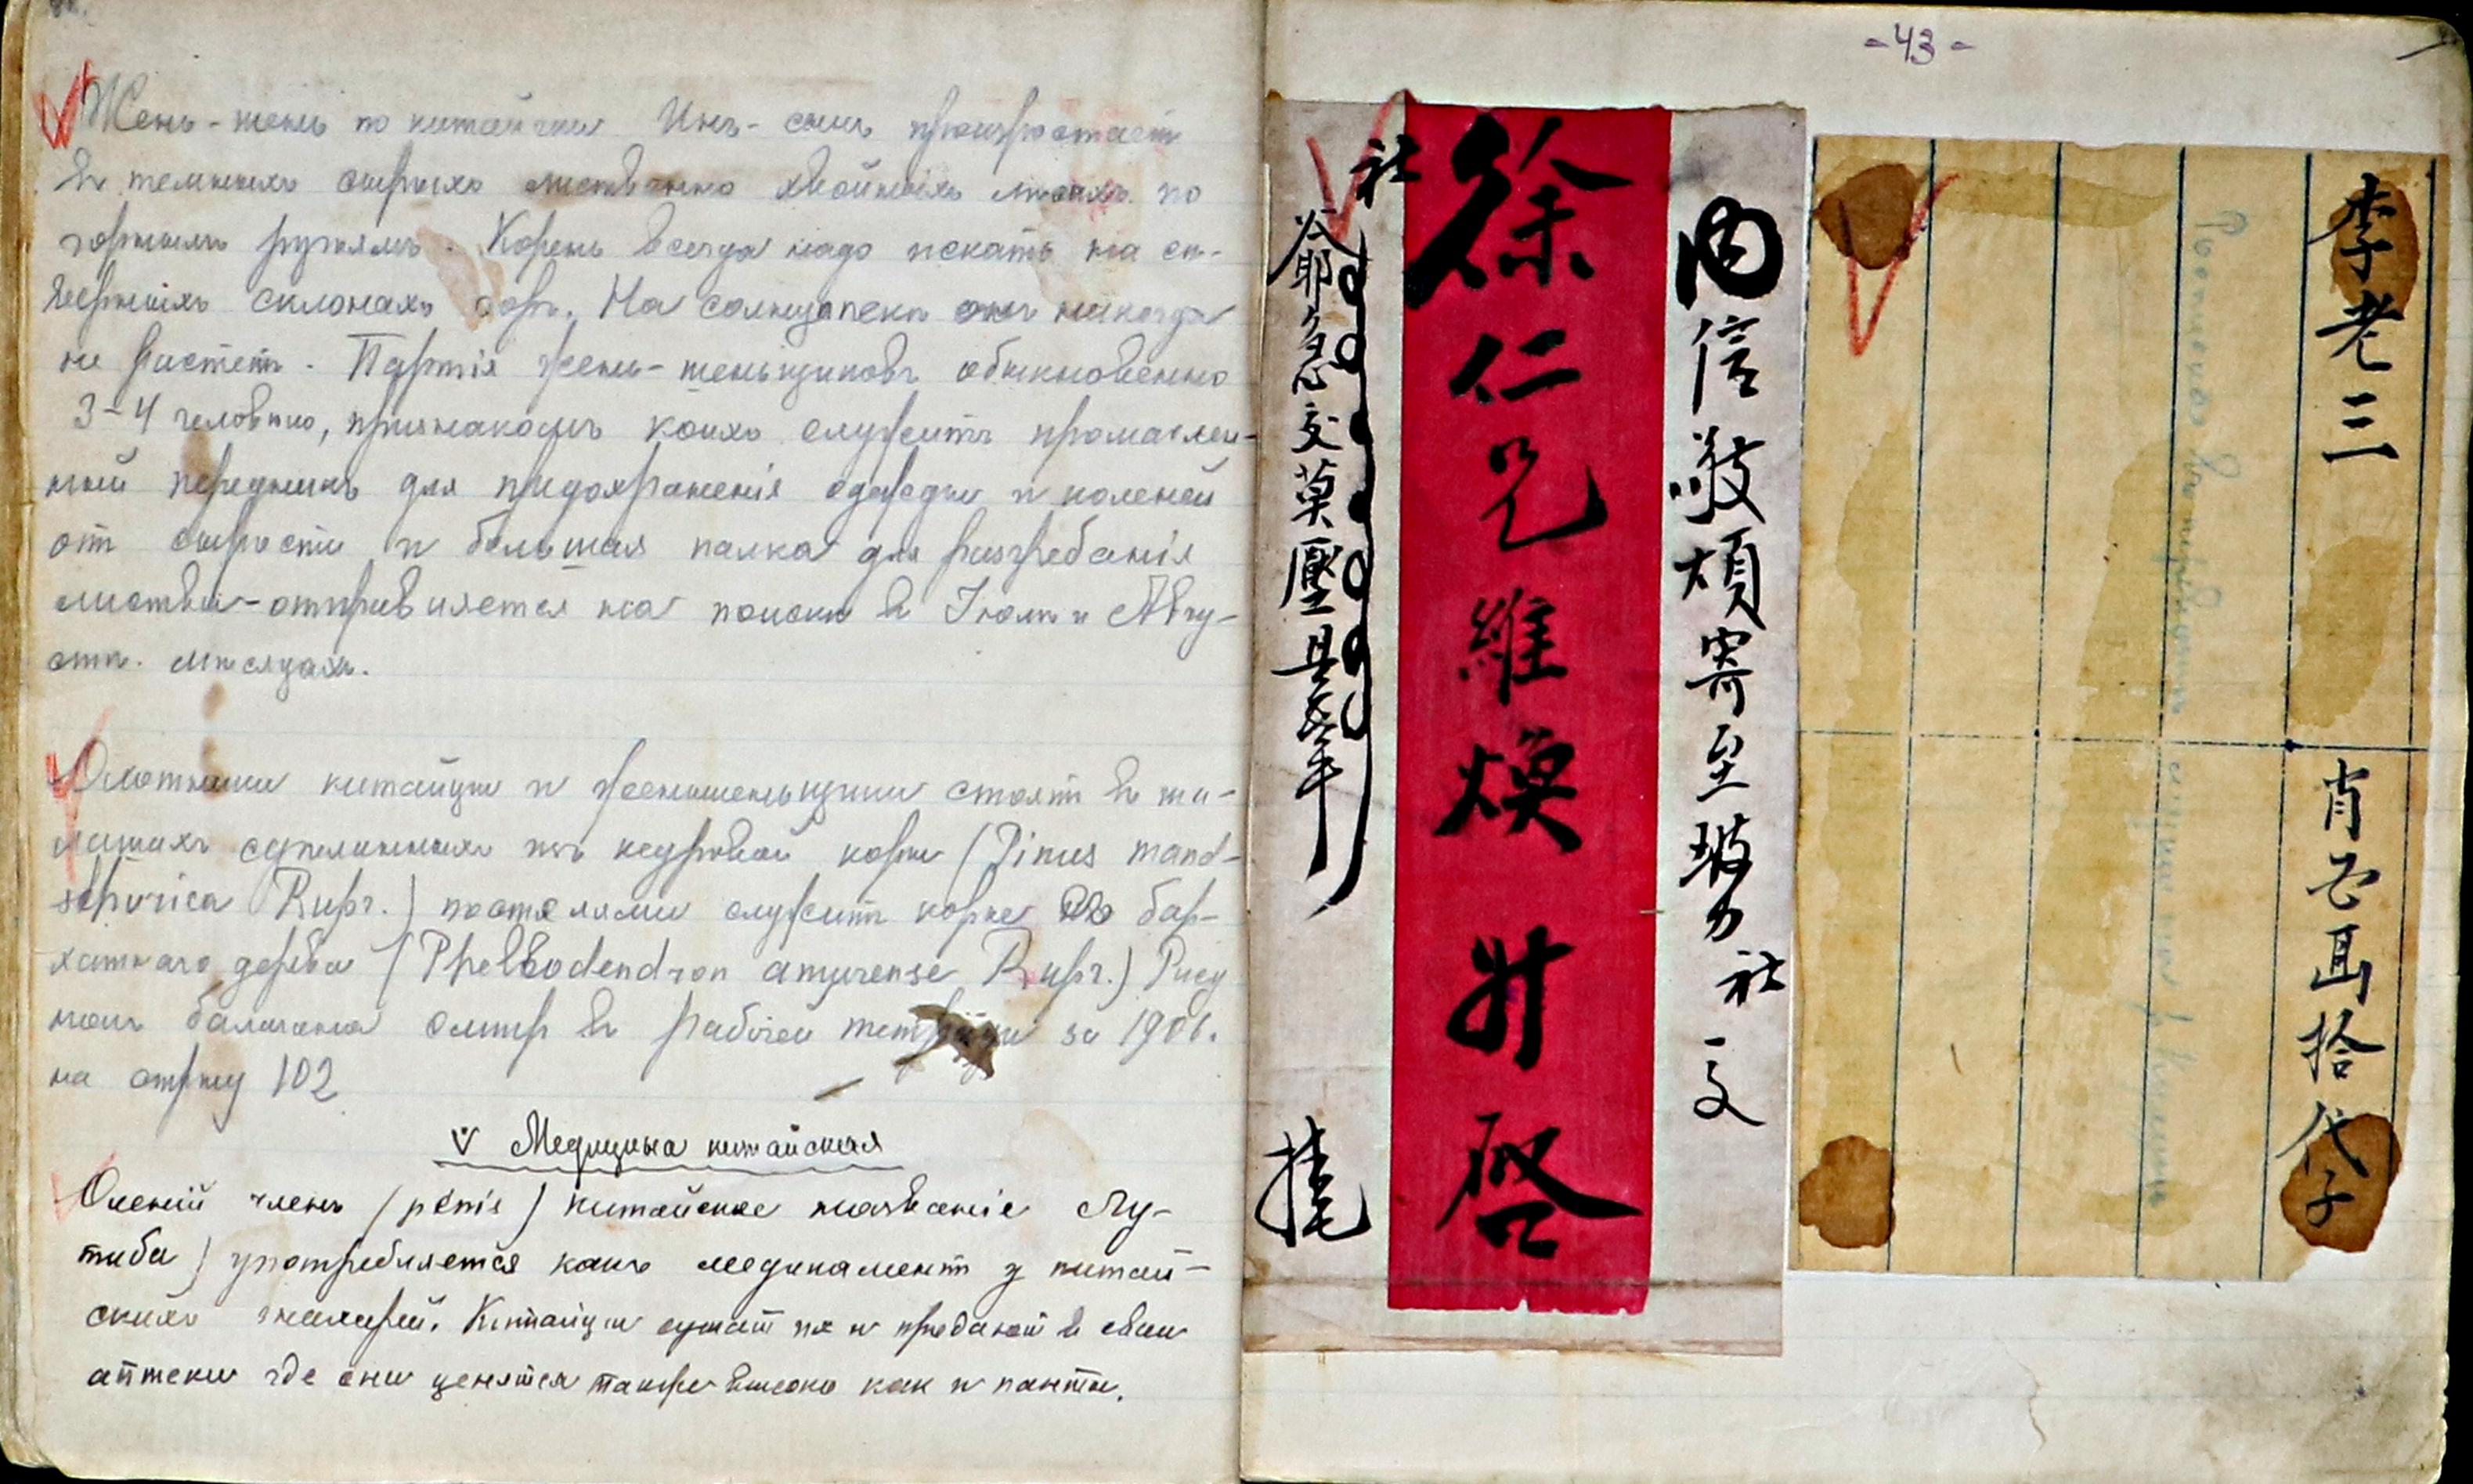 Жень-шень по китайски Инъ-сынъ произростаетъ
въ темныхъ сырыхъ лиственно хвойныхъ лѣсахъ по
горнымъ ручьямъ. Корень всегда надо искать на сѣ-
верныхъ склонахъ горъ. На солнцепекѣ онъ никогда
не растетъ. Партія жень-шеньщиковъ обыкновенно
3-4 человѣка, признакомъ коихъ служитъ промаслен-
ный передникъ для предохраненія одежды и коленей
от сырости и большая палка для разгребанія
листвы-отправляется на поиски въ Іюлѣ и Авгу-
стѣ. мѣсяцахъ.
Охотники китайцы и женьшеньщики стоятъ въ ша-
лашахъ сделанныхъ изъ кедровой коры (Pinus mand-
schurica Rupr.) постелями служитъ корье бар-
хатнаго дерева (Phellodendron amurense Rupr.) Рису
нокъ балагана смотр въ рабочей тетради за 1906.
на стрцу 102
V Медицина китайская
Оленій членъ (penis) китайское названіе Лу-
тиба) употребляется какъ медикаментъ у китай-
скихъ знахарей. Китайцы сушат их и продают въ свои
аптеки где они ценятся также высоко как и панты.
-43-
李老三 肖 拾代子
内信敬煩寄至 社 交
徐仁兄維煥升啓
社
爺 急交莫壓是幸